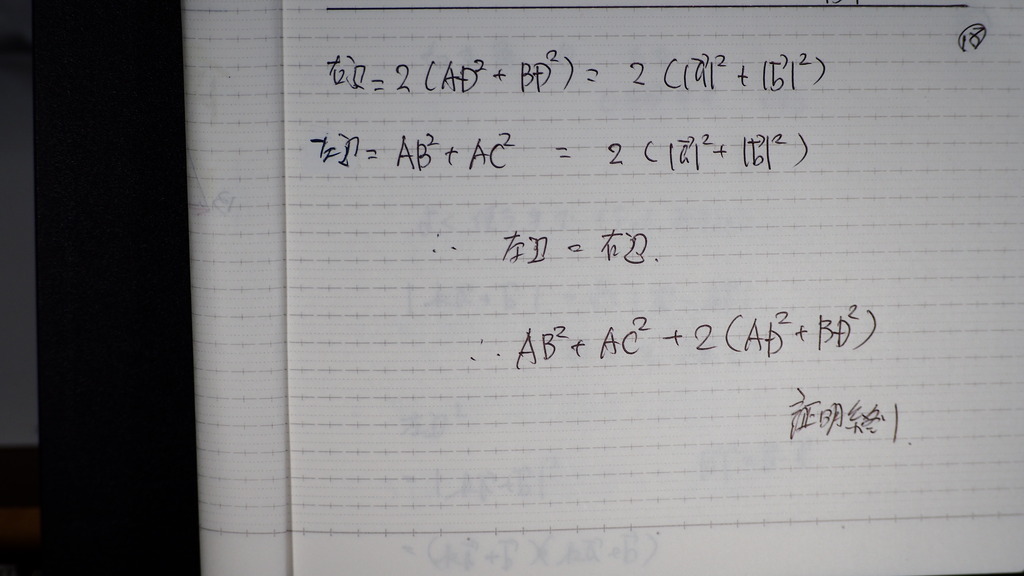 ⑱
右辺 = 2 (AD² + BD²) = 2 (|a⃗|² + |b⃗|²)
左辺 = AB² + AC² = 2 (|a⃗|² + |b⃗|²)
∴ 左辺 = 右辺.
∴ AB² + AC² + 2 (AD² + BD²)
証明終